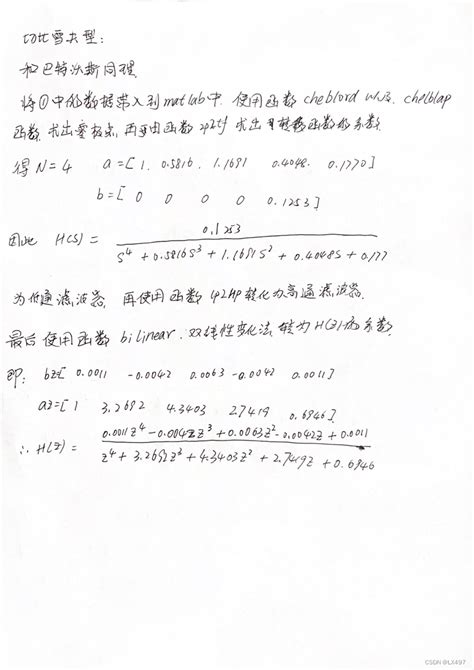 切比雪夫型:
和巴特沃斯同理
将①中的数据带入到matlab中. 使用函数 cheb1ord 以及. cheb1ap
函数. 求出零极点, 再由函数 zp2tf 求出转移函数的系数.
得 N=4 a=[1. 0.5816. 1.1691 0.4048. 0.1770]
b=[0 0 0 0 0.1253]
因此 H(s) = 0.1253
S⁴ + 0.5816S³ + 1.1691S² + 0.4048S + 0.177
为低通滤波器. 再使用函数 lp2hp 转化为高通滤波器.
最后使用函数 bilinear. 双线性变化法, 转为H(z)的系数.
即: bz[ 0.0011 -0.0042 0.0063 -0.0042 0.0011]
az=[1 3.2692 4.3403 2.7419 0.6946]
∴ H(z) = 0.0011z⁴ - 0.0042z³ + 0.0063z² - 0.0042z + 0.0011
z⁴ + 3.2692z³ + 4.3403z² + 2.7419z + 0.6946
CSDN @LX497